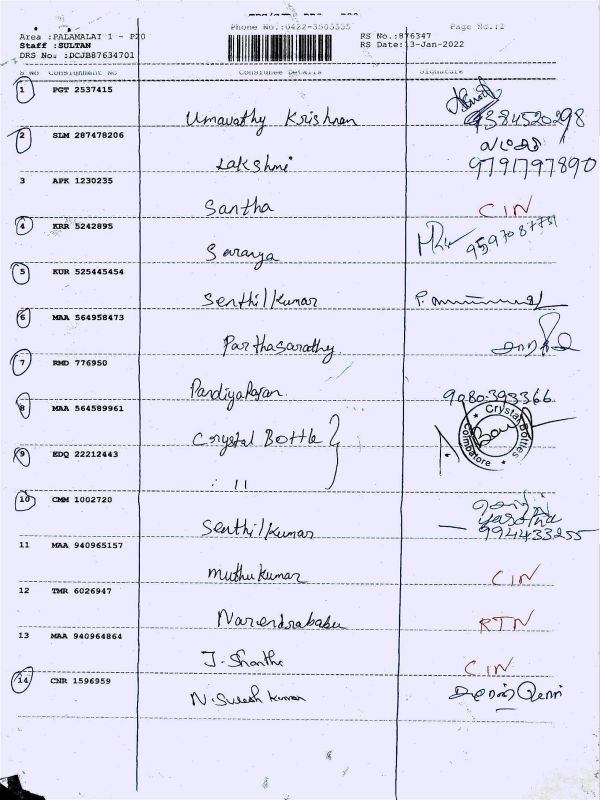 Phone No.:0422-3503535 Page No.:2
Area :PALAMALAI 1 - P20 RS No.:876347
Staff :SULTAN RS Date:13-Jan-2022
DRS No. :DCJB87634701
S No Consignment No Consignee Details Signature
1 PGT 2537415
Umavathy Krishnan 9384520298
2 SLM 287478206
Lakshmi 9791797890
3 APK 1230235
Santha CIN
4 KRR 5242895
Saranya 9597087751
5 KUR 525445454
Senthilkumar
6 MAA 564958473
Parthasarathy.
7 RMD 776950
Pandiyarajan 9080393366
8 MAA 564589961
Crystal Bottle Crystal Bottles Coimbatore
9 EDQ 22212443
: 11
10 CMM 1002720
Senthilkumar 994433255
11 MAA 940965157
Muthukumar CIN
12 TMR 6026947
Narendrababu RTN
13 MAA 940964864
J. Shanthi CIN
14 CNR 1596959
N. Suresh kumar